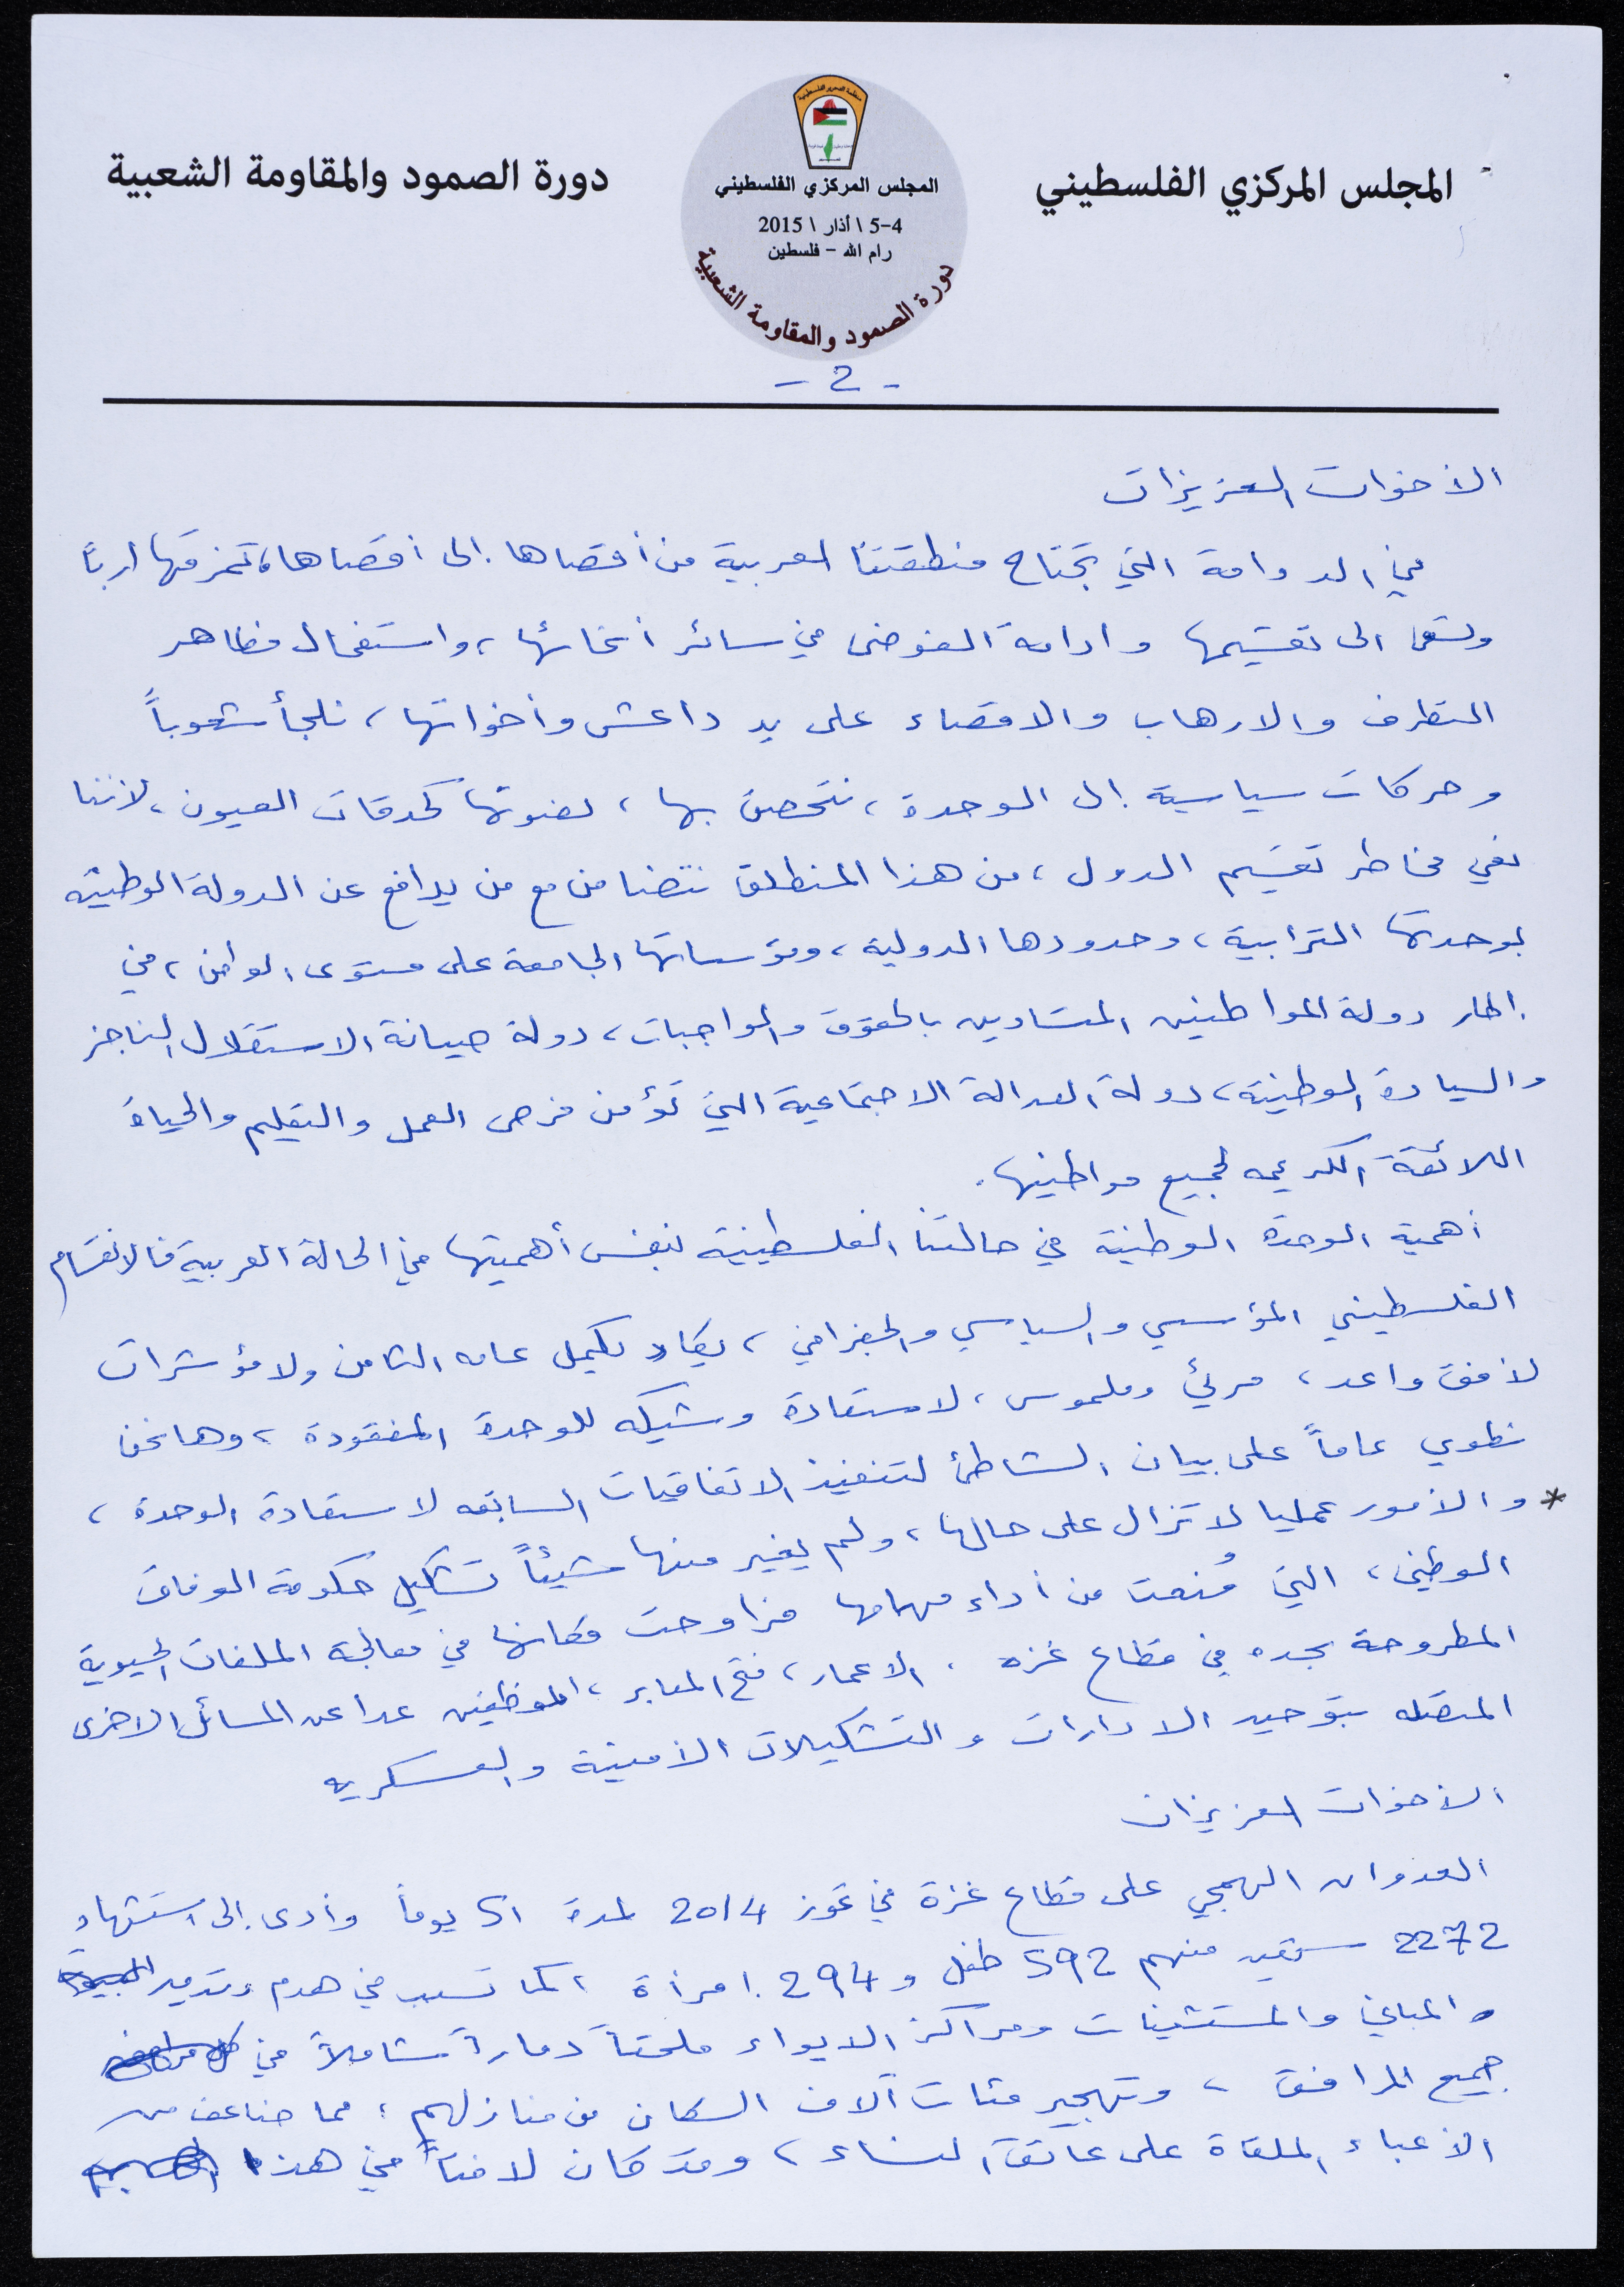 المجلس المركزي الفلسطيني
منظمة التحرير الفلسطينية
المجلس المركزي الفلسطيني
4-5 \ أذار \ 2015
رام الله - فلسطين
دورة الصمود والمقاومة الشعبية
دورة الصمود والمقاومة الشعبية
- 2 -
الأخوات العزيزات
في الدوامة التي تجتاح منطقتنا العربية من أقصاها إلى أقصاها، تمزقها أرباً
وتسعى الى تقسيمها وادامة الفوضى في سائر أنحائها، واستفحال مظاهر
التطرف والارهاب والاقصاء على يد داعش وأخواتها، نلجأ شعوباً
وحركات سياسية إلى الوحدة، نتحصن بها، لصونها كحدقات العيون، لأننا
نعي مخاطر تقسيم الدول، من هذا المنطلق نتضامن مع من يدافع عن الدولة الوطنية
بوحدتها الترابية، وحدودها الدولية، ومؤسساتها الجامعة على مستوى الوطن، في
إطار دولة المواطنين المتساوين بالحقوق والواجبات، دولة صيانة الاستقلال الناجز
والسيادة الوطنية، دولة العدالة الاجتماعية التي تؤمن فرص العمل والتعليم والحياة
اللائقة الكريمه لجميع مواطنيها.
أهمية الوحدة الوطنية في حالتنا الفلسطينية بنفس أهميتها في الحالة العربية فالانقسام
الفلسطيني المؤسسي والسياسي والجغرافي، يكاد يكمل عامه الثامن ولا مؤشرات
لأفق واعد، مرئي وملموس، لاستعادة وشيكه للوحدة المفقودة، وها نحن
نطوي عاماً على بيان الشاطئ لتنفيذ الاتفاقيات السابقه لاستعادة الوحدة،
* والأمور عمليا لا تزال على حالها، ولم يغير منها شيئاً تشكيل حكومة الوفاق
الوطني، التي مُنعت من أداء مهامها فراوحت مكانها في معالجة الملفات الحيوية
المطروحة بحده في قطاع غزه، الاعمار، فتح المعابر، الموظفين عدا عن المسائل الاخرى
المتصله بتوحيد الادارات والتشكيلات الأمنية والعسكريه
الأخوات العزيزات
العدوان الهمجي على قطاع غزة في تموز 2014 لمدة 51 يوماً وأدى إلى استشهاد
2272 منهم 592 طفل و 294 إمرأة، كما تسبب في هدم وتدمير
والمباني والمستشفيات ومراكز الايواء ملحقاً دماراً شاملاً في
جميع المرافق، وتهجير مئات آلاف السكان من منازلهم، مما ضاعف من
الأعباء الملقاة على عاتق النساء، وقد كان لافتاً في هذه